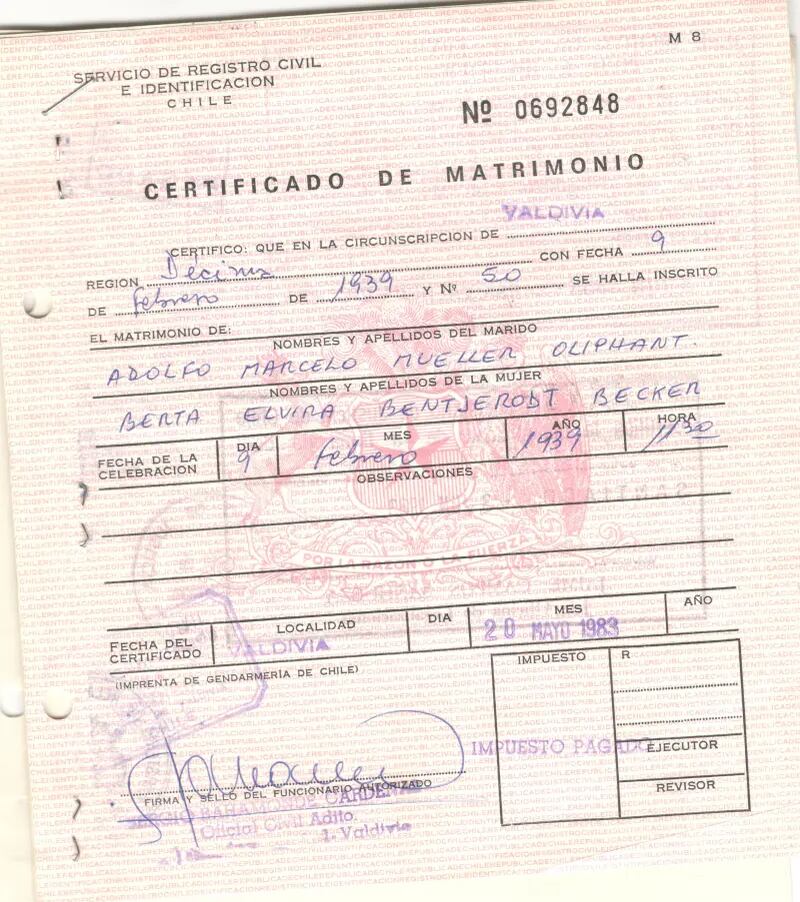 M 8
SERVICIO DE REGISTRO CIVIL
E IDENTIFICACION
CHILE
Nº 0692848
CERTIFICADO DE MATRIMONIO
VALDIVIA
CERTIFICO: QUE EN LA CIRCUNSCRIPCION DE
REGION Decima CON FECHA 9
DE febrero DE 1939 Y Nº 50 SE HALLA INSCRITO
EL MATRIMONIO DE:
NOMBRES Y APELLIDOS DEL MARIDO
ADOLFO MARCELO MUELLER OLIPHANT.
NOMBRES Y APELLIDOS DE LA MUJER
BERTA ELVIRA BENTJERODT BECKER
FECHA DE LA CELEBRACION DIA 9 MES febrero AÑO 1939 HORA 11 30
OBSERVACIONES
POR LA RAZON O LA FUERZA
FECHA DEL CERTIFICADO LOCALIDAD VALDIVIA DIA MES AÑO
20 MAYO 1983
(IMPRENTA DE GENDARMERIA DE CHILE)
IMPUESTO R
IMPUESTO PAGADO
EJECUTOR
REVISOR
FIRMA Y SELLO DEL FUNCIONARIO AUTORIZADO
Oficial Civil Adjto.
Valdivia